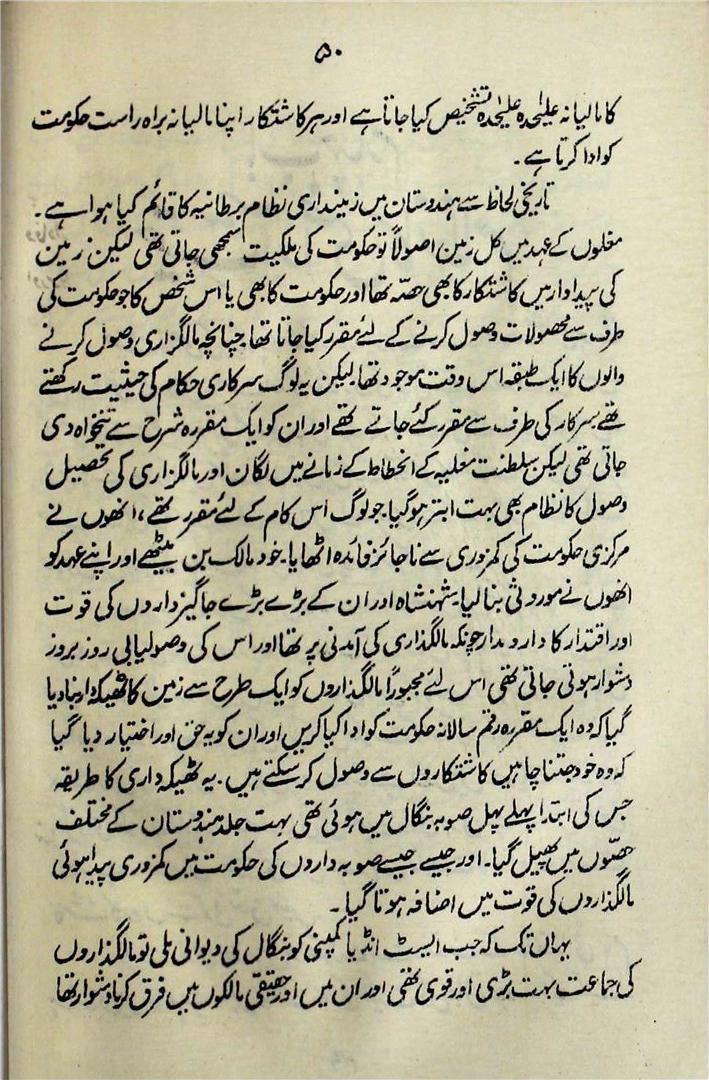 ۵۰
کا مالیانہ علیٰحدہ علیٰحدہ تشخیص کیا جاتا ہے اور ہر کاشتکار اپنا مالیانہ براہ راست حکومت
کو ادا کرتا ہے۔
تاریخی لحاظ سے ہندوستان میں زمینداری نظام برطانیہ کا قائم کیا ہوا ہے۔
مغلوں کے عہد میں کل زمین اصولاً تو حکومت کی ملکیت سمجھی جاتی تھی لیکن زمین
کی پیداوار میں کاشتکار کا بھی حصّہ تھا اور حکومت کا بھی یا اس شخص کا جو حکومت کی
طرف سے محصولات وصول کرنے کے لئے مقرر کیا جاتا تھا۔ چنانچہ مالگزاری وصول کرنے
والوں کا ایک طبقہ اس وقت موجود تھا۔ لیکن یہ لوگ سرکاری حکام کی حیثیت رکھتے
تھے سرکار کی طرف سے مقرر کئے جاتے تھے اور ان کو ایک مقررہ شرح سے تنخواہ دی
جاتی تھی لیکن سلطنت مغلیہ کے انحطاط کے زمانے میں لگان اور مالگزاری کی تحصیل
وصول کا نظام بھی بہت ابتر ہو گیا۔ جو لوگ اس کام کے لئے مقرر تھے، انھوں نے
مرکزی حکومت کی کمزوری سے ناجائز فائدہ اٹھایا۔ خود مالک بن بیٹھے اور اپنے عہد کو
انھوں نے موروثی بنا لیا۔ شہنشاہ اور ان کے بڑے بڑے جاگیرداروں کی قوت
اور اقتدار کا دارومدار چونکہ مالگذاری کی آمدنی پر تھا اور اس کی وصولیابی روز بروز
دشوار ہوتی جاتی تھی اس لئے مجبوراً مالگذاروں کو ایک طرح سے زمین کا ٹھیکہ دار بنا دیا
گیا کہ وہ ایک مقررہ رقم سالانہ حکومت کو ادا کیا کریں اور ان کو یہ حق اور اختیار دیا گیا
کہ وہ خود جتنا چاہیں کاشتکاروں سے وصول کر سکتے ہیں۔ یہ ٹھیکہ داری کا طریقہ
جس کی ابتدا پہلے پہل صوبہ بنگال میں ہوئی تھی بہت جلد ہندوستان کے مختلف
حصّوں میں پھیل گیا۔ اور جیسے جیسے صوبہ داروں کی حکومت میں کمزوری پیدا ہوئی
مالگذاروں کی قوت میں اضافہ ہوتا گیا۔
یہاں تک کہ جب ایسٹ انڈیا کمپنی کو بنگال کی دیوانی ملی تو مالگذاروں
کی جماعت بہت بڑی اور قوی تھی اور ان میں اور حقیقی مالکوں میں فرق کرنا دشوار تھا